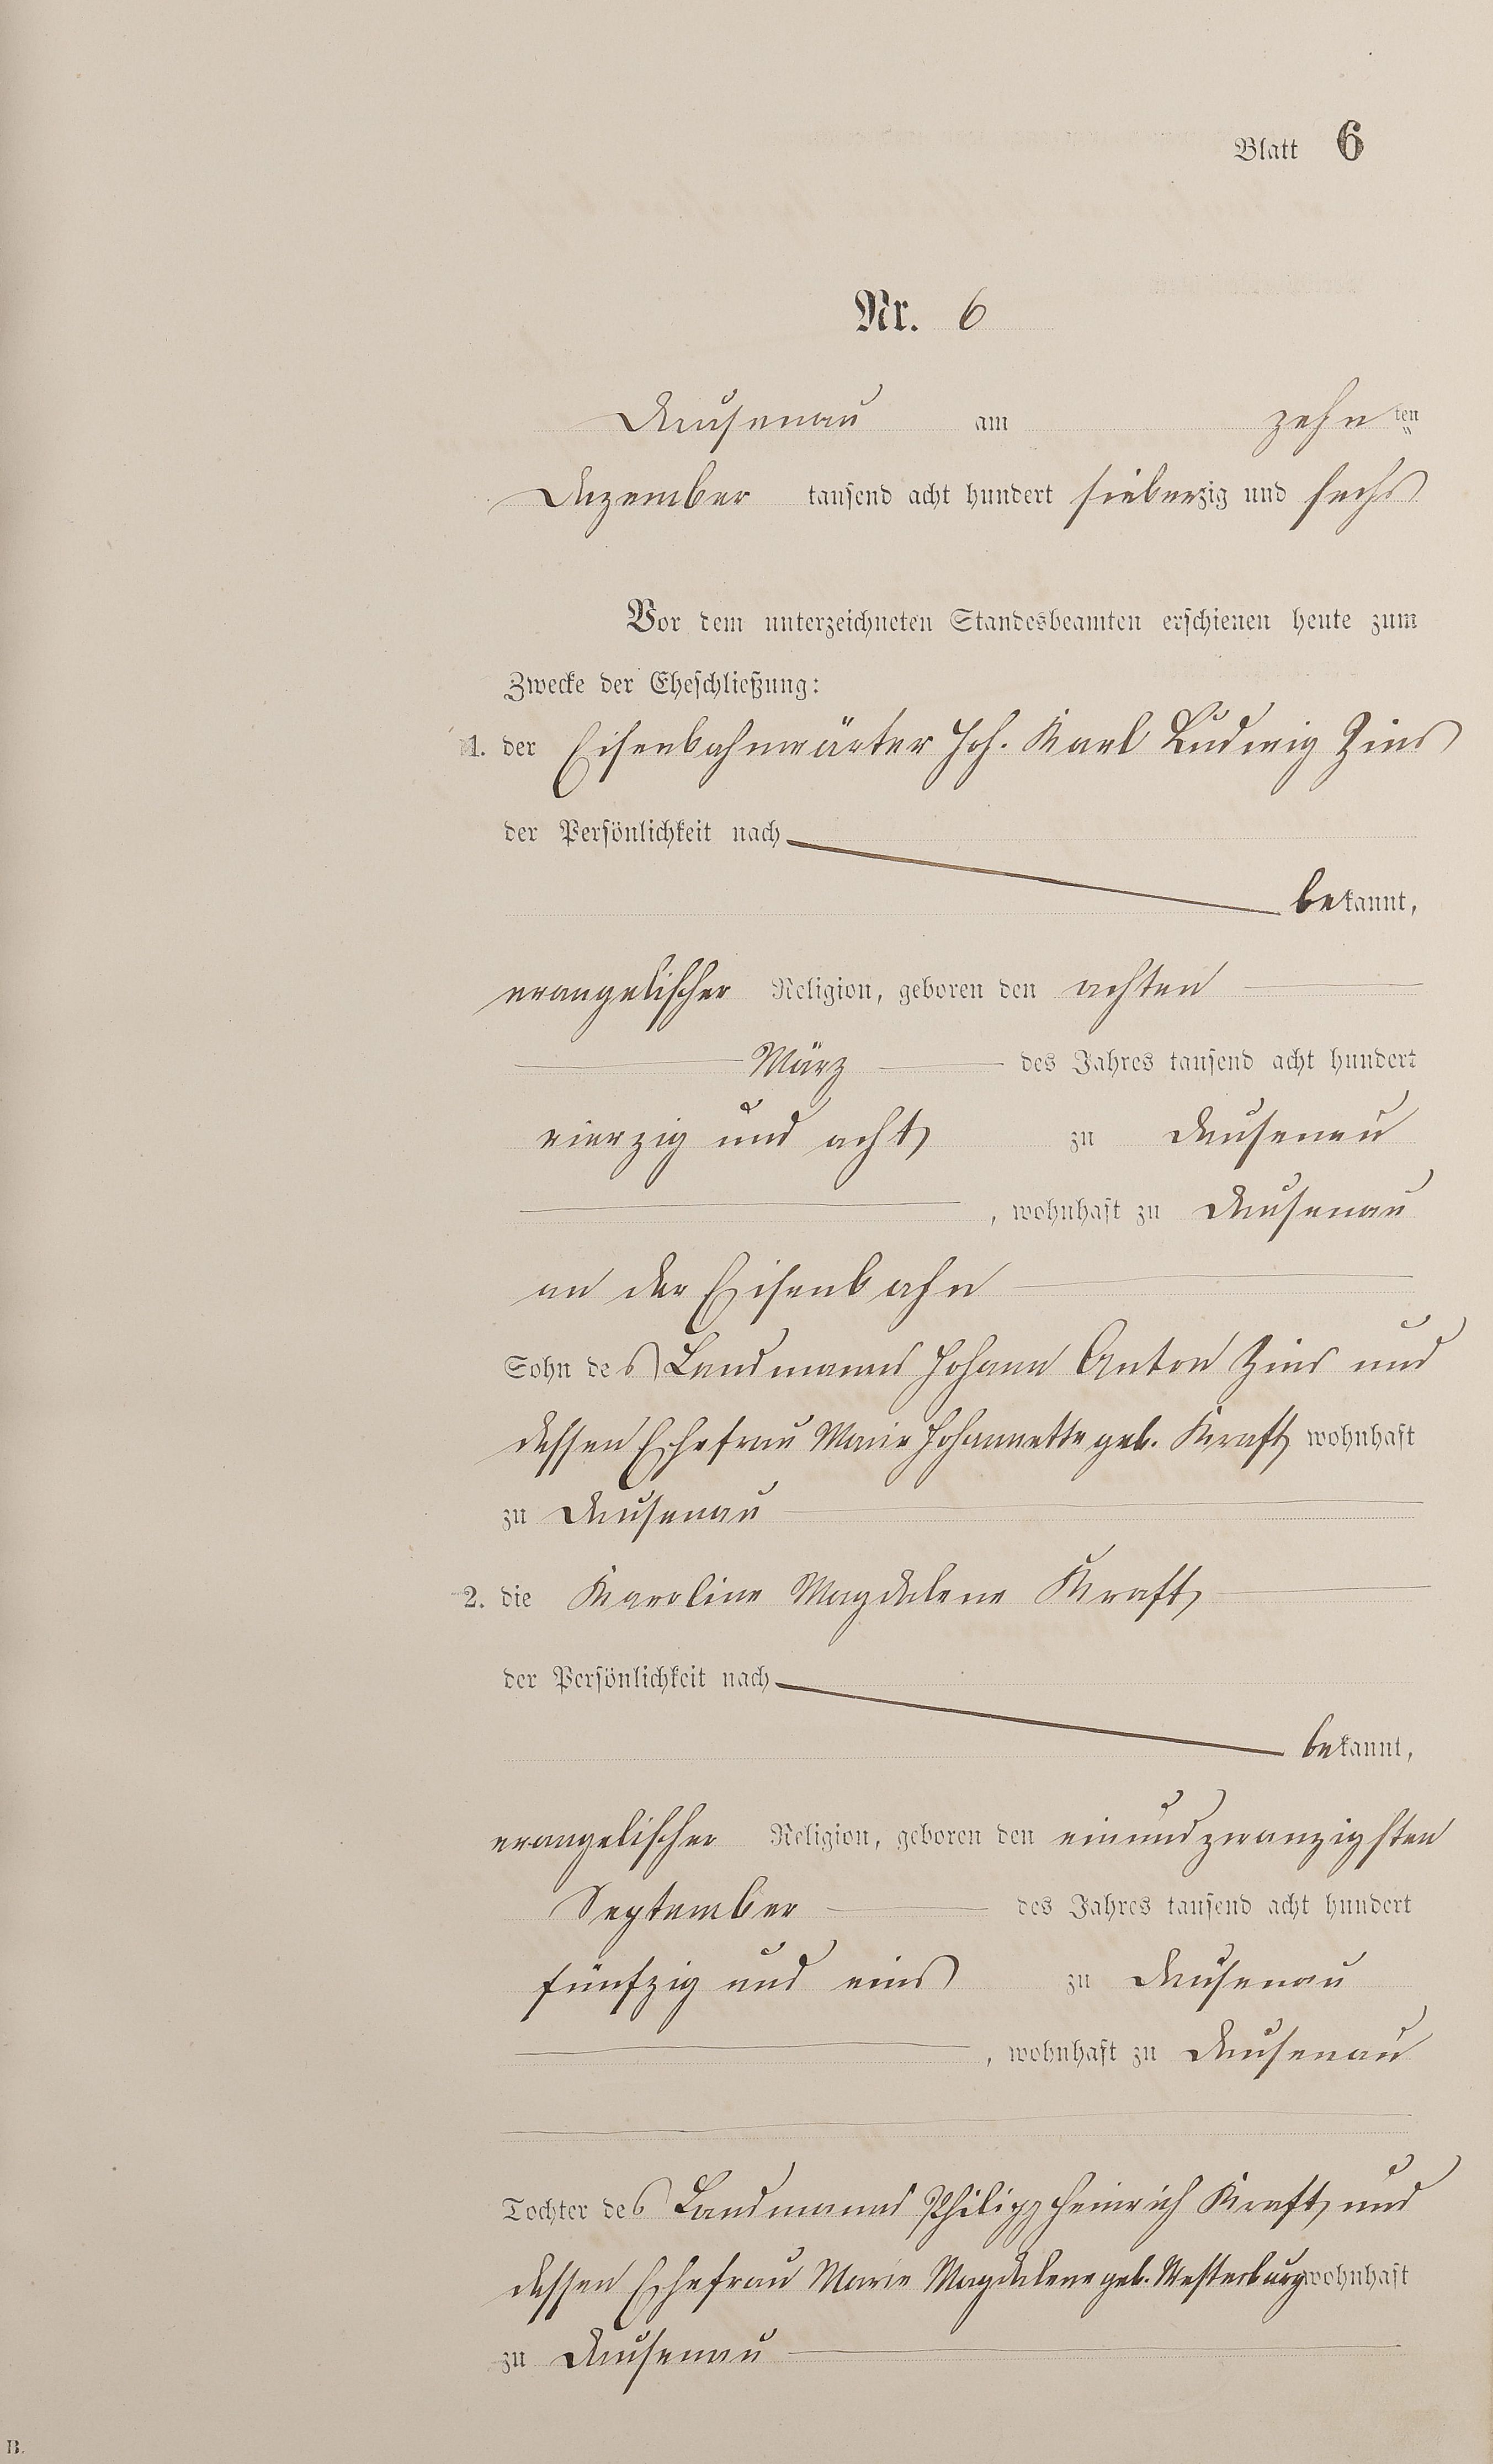 Blatt 6
Nr. 6
Dausenau am zehn ten
Dezember tausend acht hundert siebenzig und sechs
Vor dem unterzeichneten Standesbeamten erschienen heute zum
Zwecke der Eheschließung:
1. der Eisenbahnwärter Joh. Karl Ludwig Zins
der Persönlichkeit nach
bekannt,
evangelischer Religion, geboren den achten
März des Jahres tausend acht hundert
vierzig und acht zu Dausenau
, wohnhaft zu Dausenau
an der Eisenbahn
Sohn des Landmanns Johann Anton Zins und
dessen Ehefrau Marie Johannette geb. Kraft wohnhaft
zu Dausenau
2. die Karoline Magdalene Kraft
der Persönlichkeit nach
bekannt,
evangelischer Religion, geboren den einundzwanzigsten
September des Jahres tausend acht hundert
fünfzig und eins zu Dausenau
, wohnhaft zu Dausenau
Tochter des Landmanns Philipp Heinrich Kraft und
dessen Ehefrau Marie Magdalene geb. Westerburg wohnhaft
zu Dausenau
B.